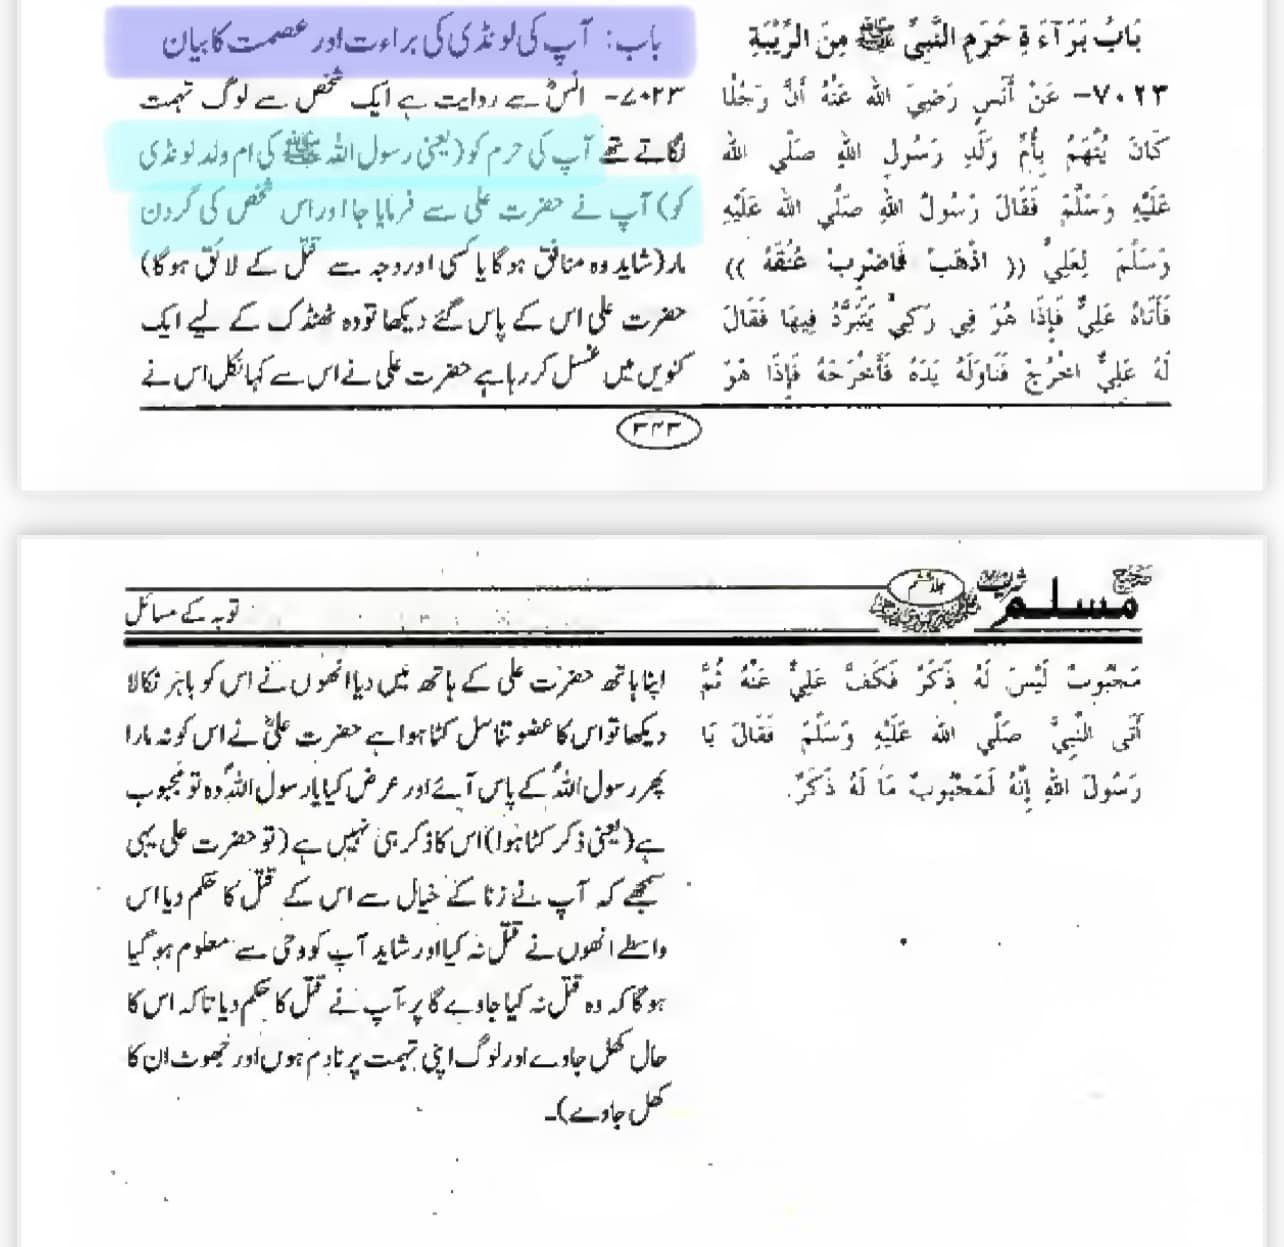 بَابُ بَرَآءَةِ حَرَمِ النَّبِيِّ ﷺ مِنَ الرِّيْبَةِ
۷۰۲۳- عَنْ أَنَسٍ رَضِيَ اللهُ عَنْهُ أَنَّ رَجُلًا
كَانَ يُتَّهَمُ بِأُمِّ وَلَدِ رَسُولِ اللهِ صَلَّي اللهُ
عَلَيْهِ وَسَلَّمَ فَقَالَ رَسُولُ اللهِ صَلَّي اللهُ عَلَيْهِ
وَسَلَّمَ لِعَلِيٍّ (( اذْهَبْ فَاضْرِبْ عُنُقَهُ ))
فَأَتَاهُ عَلِيٌّ فَإِذَا هُوَ فِي رَكِيٍّ يَتَبَرَّدُ فِيهَا فَقَالَ
لَهُ عَلِيٌّ اخْرُجْ فَنَاوَلَهُ يَدَهُ فَأَخْرَجَهُ فَإِذَا هُوَ
باب: آپ کی لونڈی کی براءت اور عصمت کا بیان
۷۰۲۳- انسؓ سے روایت ہے ایک شخص سے لوگ تہمت
لگاتے تھے آپ کی حرم کو (یعنی رسول اللہ ﷺ کی ام ولد لونڈی
کو) آپ نے حضرت علی سے فرمایا جا اور اس شخص کی گردن
مار (شاید وہ منافق ہوگا یا کسی اور وجہ سے قتل کے لائق ہوگا)
حضرت علی اس کے پاس گئے دیکھا تو وہ ٹھنڈک کے لیے ایک
کنویں میں غسل کر رہا ہے حضرت علی نے اس سے کہا نکل اس نے
۳۴۳
صحیح مسلم شریف
توبہ کے مسائل
مَجْبُوبٌ لَيْسَ لَهُ ذَكَرٌ فَكَفَّ عَلِيٌّ عَنْهُ ثُمَّ
أَتَى النَّبِيَّ صَلَّي اللهُ عَلَيْهِ وَسَلَّمَ فَقَالَ يَا
رَسُولَ اللهِ إِنَّهُ لَمَجْبُوبٌ مَا لَهُ ذَكَرٌ.
اپنا ہاتھ حضرت علی کے ہاتھ میں دیا انھوں نے اس کو باہر نکالا
دیکھا تو اس کا عضو تناسل کٹا ہوا ہے حضرت علیؓ نے اس کو نہ مارا
پھر رسول اللہؐ کے پاس آئے اور عرض کیا یا رسول اللہؐ وہ تو مجبوب
ہے (یعنی ذکر کٹا ہوا) اس کا ذکر ہی نہیں ہے (تو حضرت علی یہی
سمجھے کہ آپ نے زنا کے خیال سے اس کے قتل کا حکم دیا اس
واسطے انھوں نے قتل نہ کیا اور شاید آپ کو وحی سے معلوم ہو گیا
ہوگا کہ وہ قتل نہ کیا جاوے گا پر آپ نے قتل کا حکم دیا تاکہ اس کا
حال کھل جاوے اور لوگ اپنی تہمت پر نادم ہوں اور جھوٹ ان کا
کھل جاوے)۔